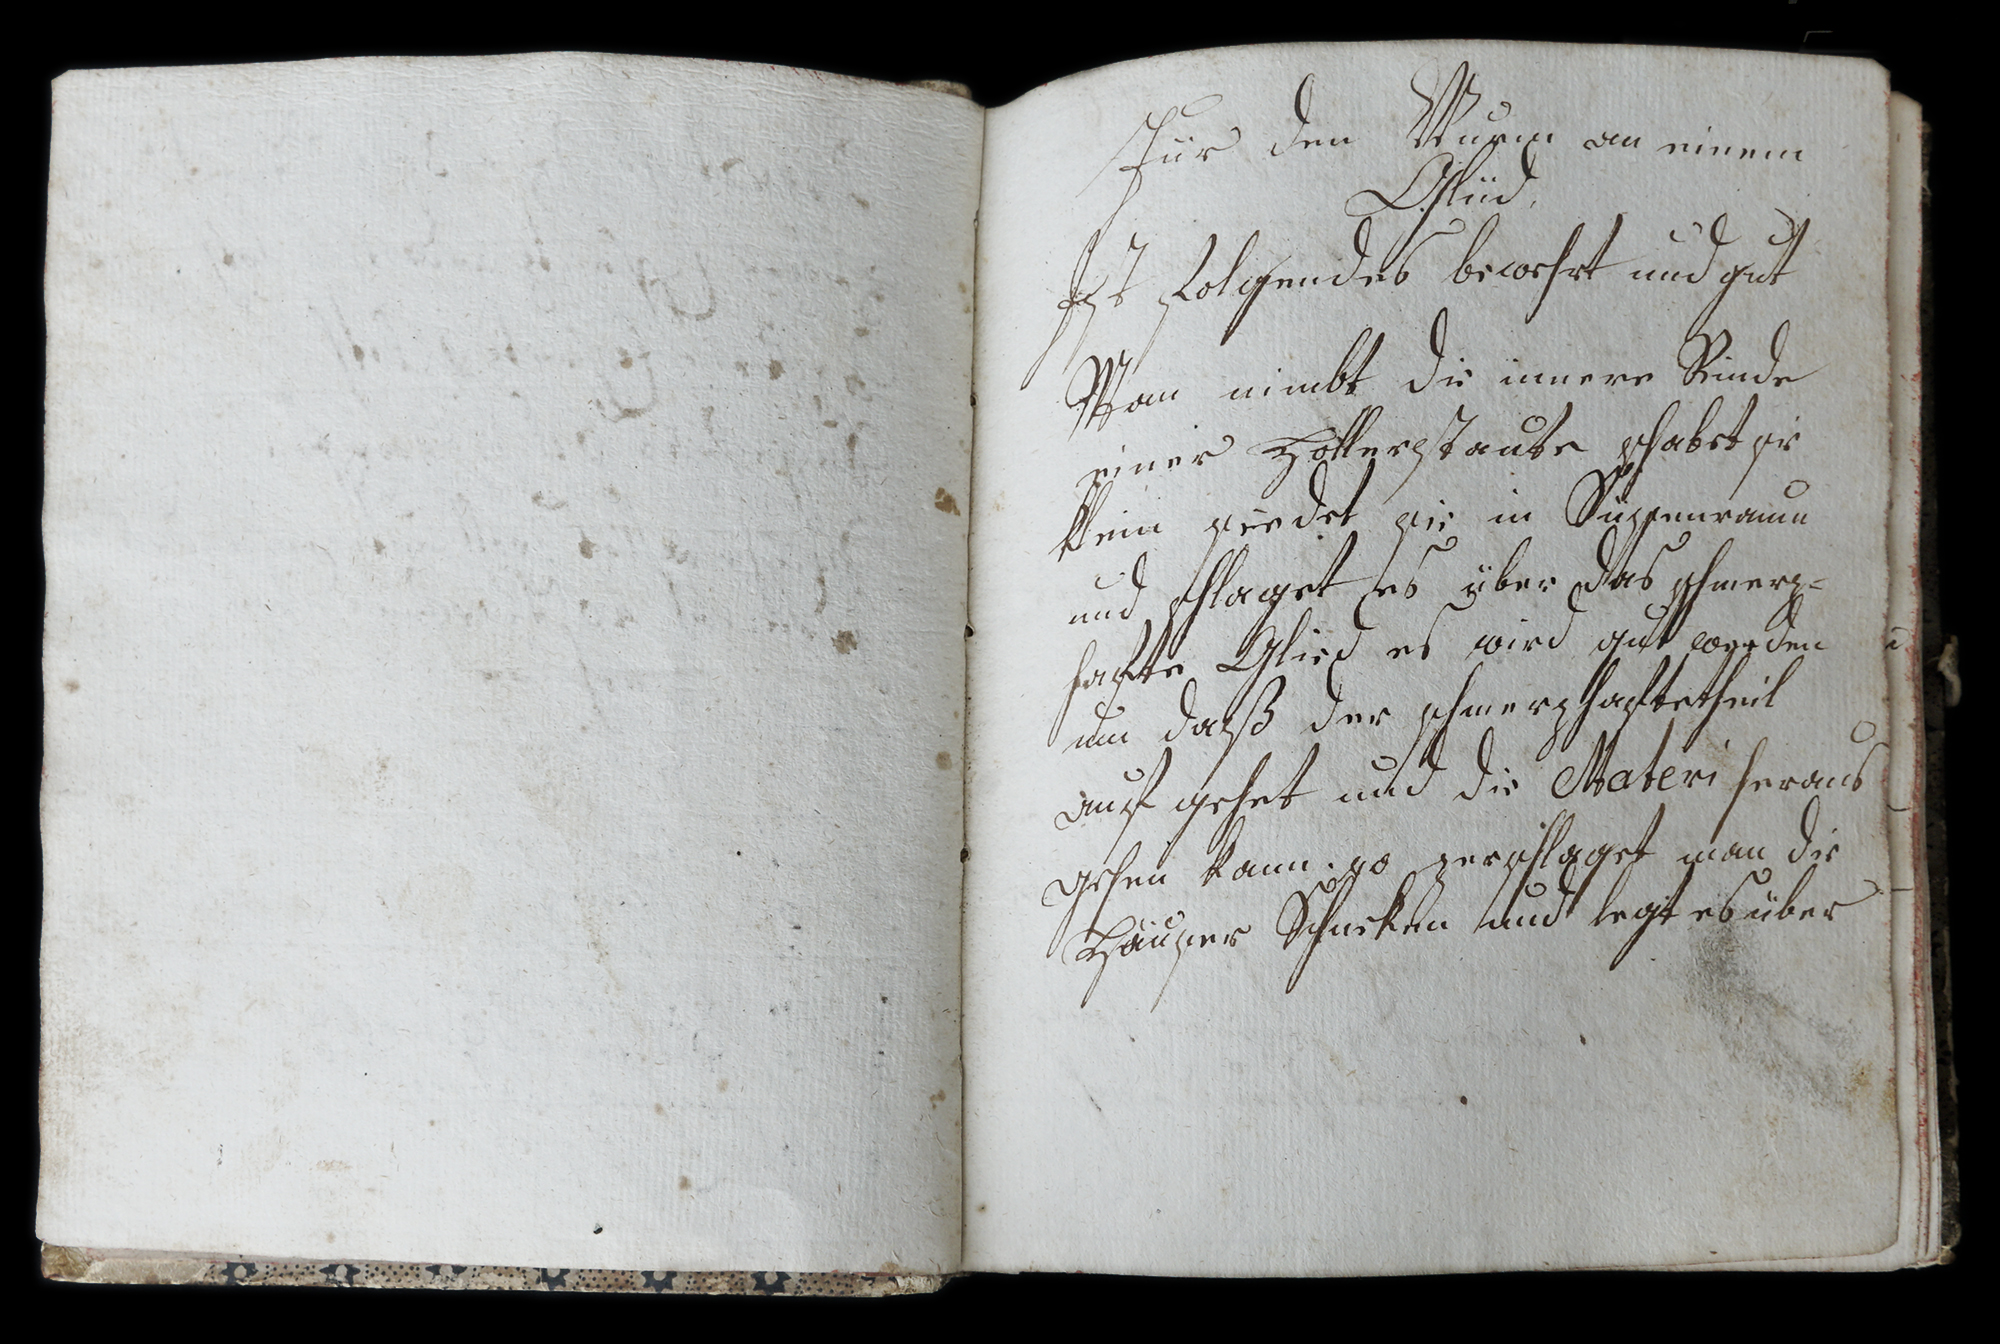 Für den Wurm an einem
Glied.
Ist folgendes bewehrt und gut
Man nimbt die innere Rinde
einer Hollerstaute schabet sie
klein siedet sie in Süssenraum
und schlaget es über das schmerz=
hafte Glied es wird gut werden
um daß der schmerzhaftetheil
auf gehet und die Materi heraus
gehen kann. so zerschlaget man die
Häuser Schneken und legt es über